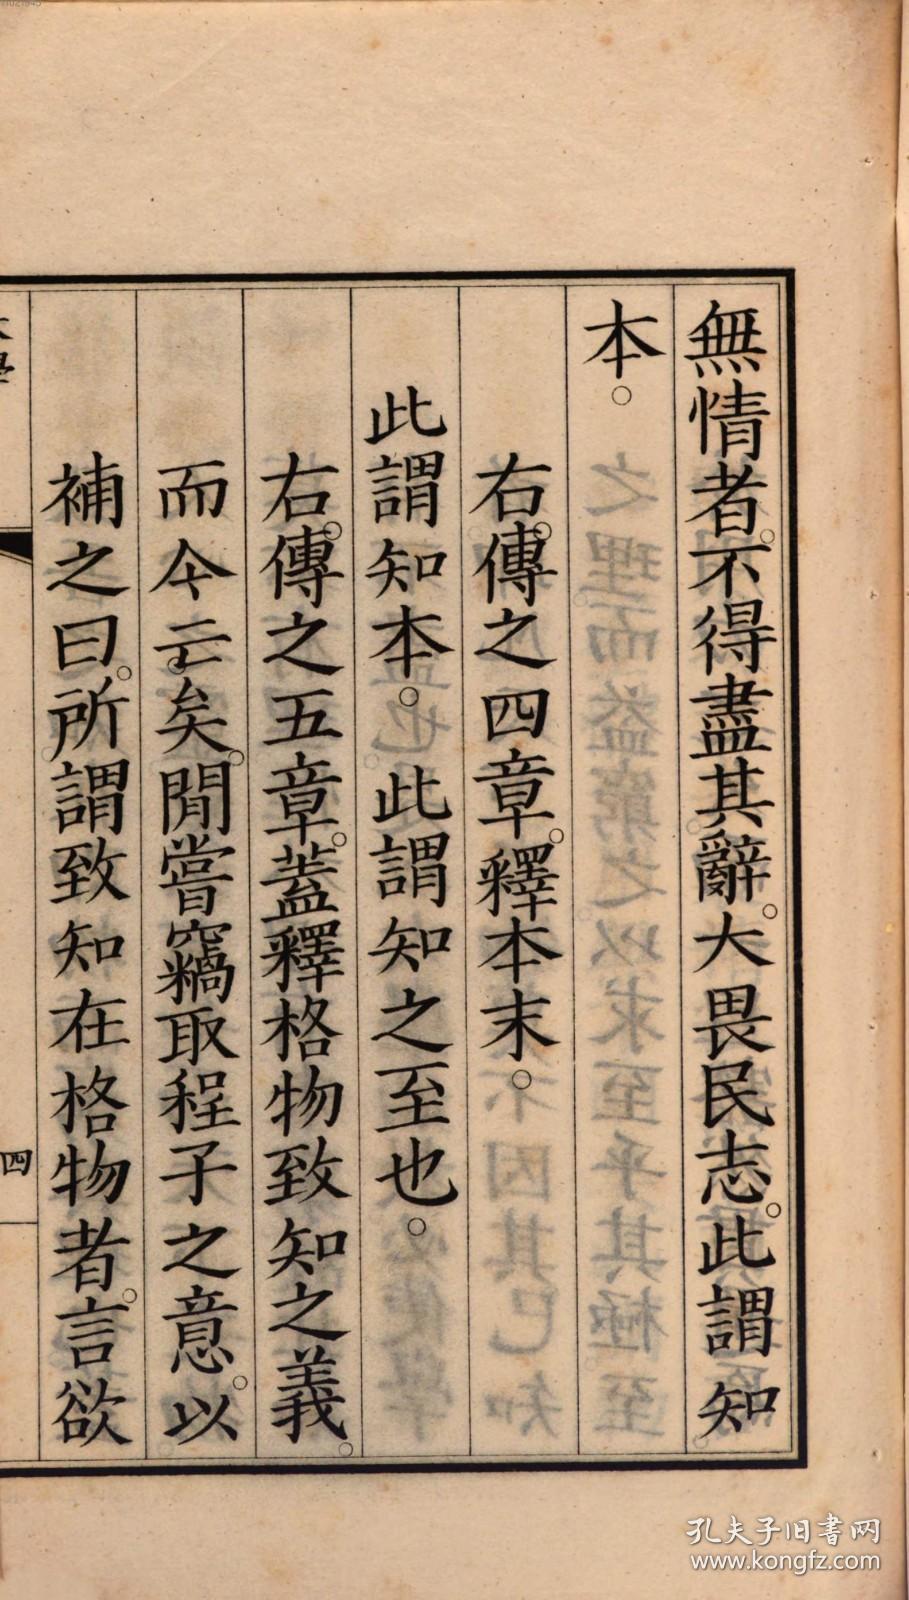 無情者。不得盡其辭。大畏民志。此謂知
本。
右。傳之四章。釋本末。
此謂知本。此謂知之至也。
右。傳之五章。蓋釋格物致知之義。
而今亡矣。閒嘗竊取程子之意。以
補之曰。所謂致知在格物者。言欲
大學
四
孔夫子旧書网
www.kongfz.com